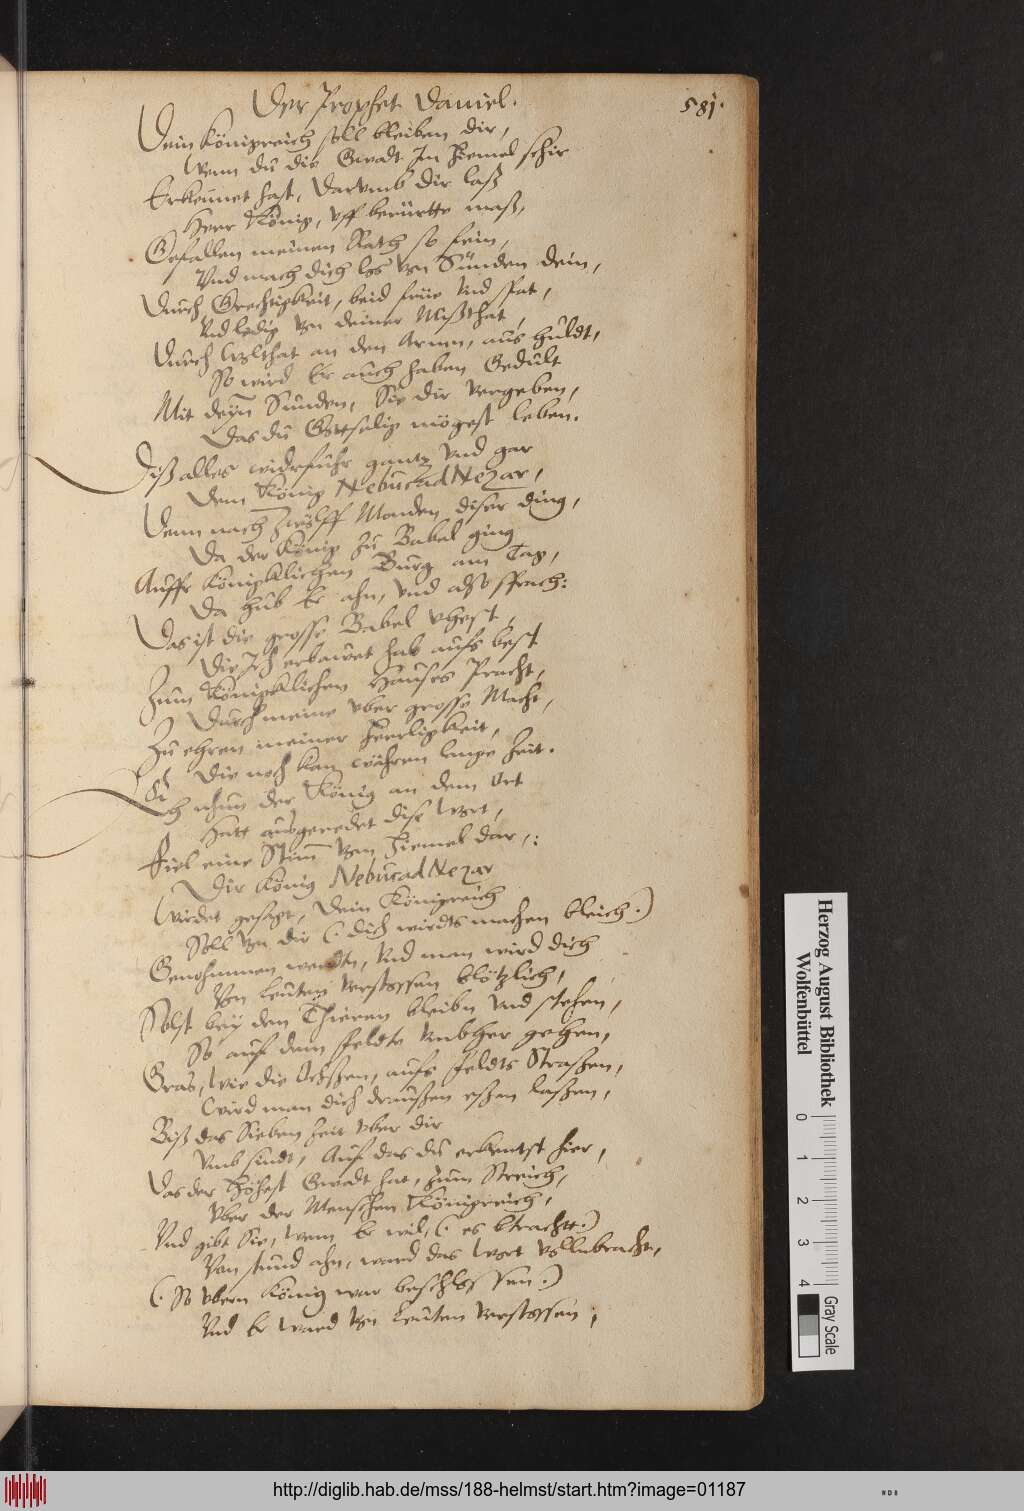 Der Prophet Daniel.
581.
Dein Königreich soll bleiben dir,
Wenn du die Gwadt Im Himel schir
Erkennet hast, Darumb dir laß
Herr König, uff berürtte maß,
Gefallen meinen Rath so fein,
Vnd mach dich los von Sünden dein,
Durch Grechtigkeit, beid frue vnd spat,
Vnd ledig von deiner Mißthat,
Durch Wolthat an den Armen, aus huldt,
So wird Er auch haben Gedult
Mit deyn Sunden, Sie dir vergeben,
Das du Gottselig mögest leben.
Diß alles widrfuhr gantz vnd gar
Dem König NebucadNezar,
Denn nach Zwölff Monden diser ding,
Da der König zu Babel ging
Auffr Königklichen Burg am Tag,
Da hub Er ahn, vnd also sprach:
Das ist die grosse Babel vhest,
Die Ich erbawet hab aufs best
Zum Königklichen Hauses Pracht,
Durch meine vber grosse Macht,
Zu ehren meiner Heerligkeit,
Die noch kan währen lange Zeit.
Eh nhun der König an dem Ort
Hatt ausgeredet dise Wort,
Fiel eine Stim von Himel dar,:
Dir König NebucadNezar
Wirdet gesagt, Dein Königreich
Soll von dir (: dich wirdts machen bleich :)
Genohmmen werdtn, Vnd man wird dich
Von Leuten verstossen blötzlich,
Solst bey den Thieren bleibn vnd stehen,
So auf dem Feldte vmbher gehen,
Gras, wie die Ochssen, aufs Feldts Strassen,
Wird man dich draussen essen lassen,
Biß das Sieben Zeit vber dir
vmb sindt, Auf das du erkentst hier,
Das der Höhest Gwadt hat, zum Streich,
Vber der Menschen Königreich,
Vnd gibt Sie, wem Er wil, (: es btracht :)
Von stund ahn, ward das Wort vollnbracht,
(: So vbern König war beschlossen :)
Vnd Er ward von Leuten verstossen,
Herzog August Bibliothek
Wolfenbüttel
0 1 2 3 4
Gray Scale
http://diglib.hab.de/mss/188-helmst/start.htm?image=01187